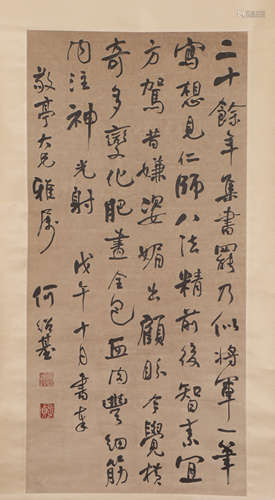 二十餘年集書羅乃似將軍一筆
寫想見仁師八法精前後智素宜
方駕昔嫌姿媚出顧眎今覺橫
奇多變化肥畫全包血肉豐細筋
內注神光射 戊午十月書奉
敬亭大兄雅屬
何紹基